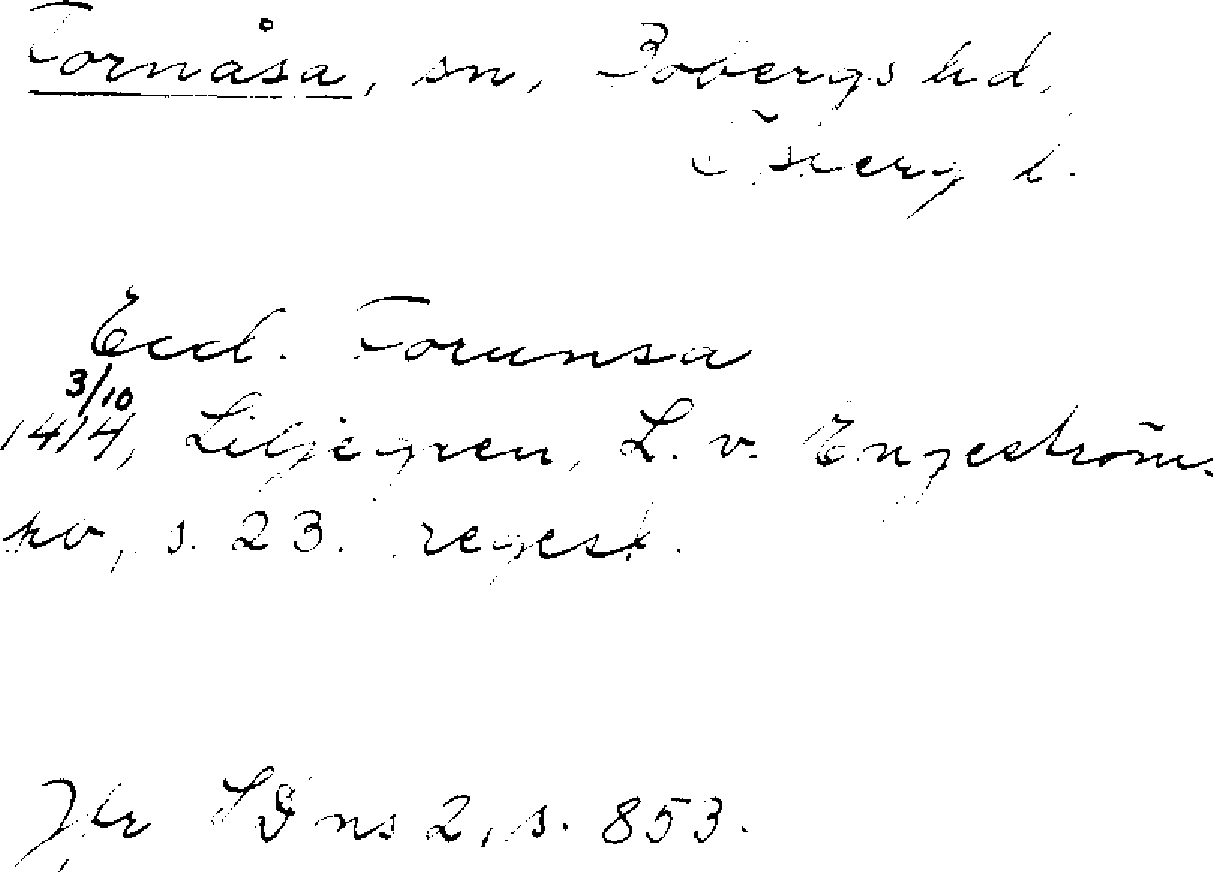 Fornåsa, sn, Bobergs hd,
Österg l.
Eccl. Forunsa
3/10
1414, Liljegren, L. v. Engeström.
kv, s. 23. regest.
Jfr SD ns 2, s. 853.